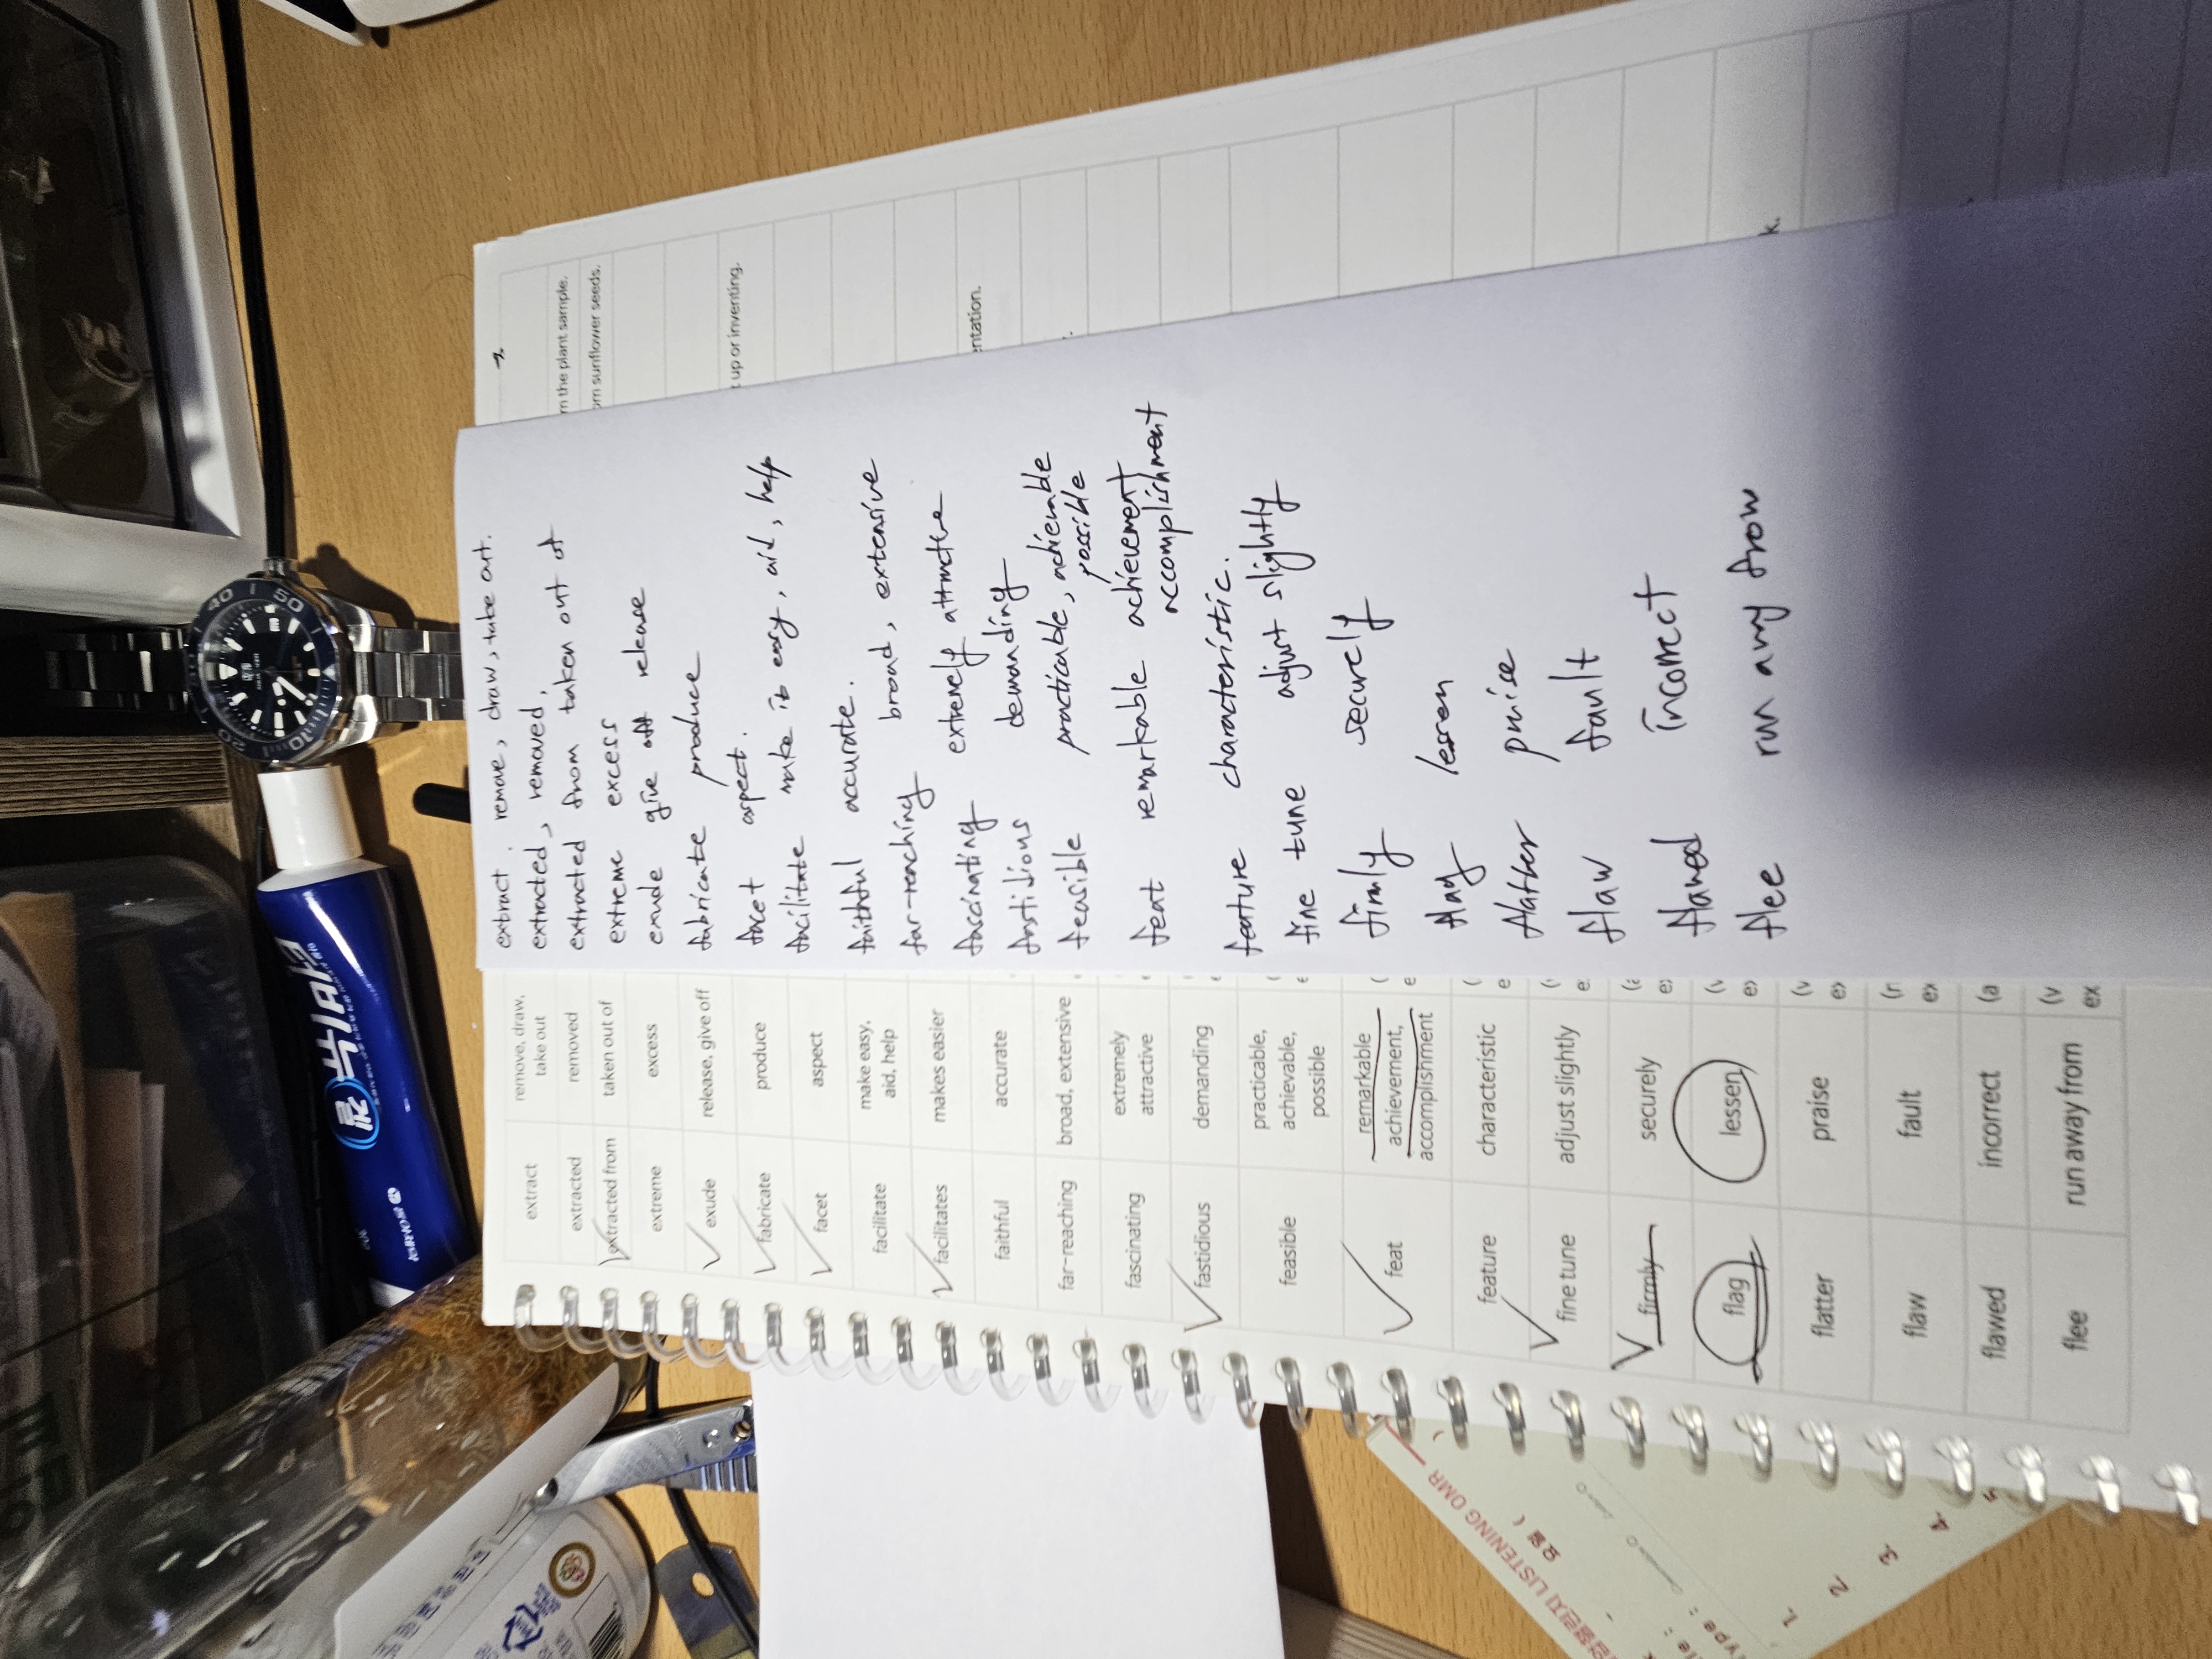 extract remove, draw, take out
extracted removed
extracted from taken out of
extreme excess
exude release, give off
fabricate produce
facet aspect
facilitate make easy, aid, help
facilitates makes easier
faithful accurate
far-reaching broad, extensive
fascinating extremely attractive
fastidious demanding
feasible practicable, achievable, possible
feat remarkable achievement, accomplishment
feature characteristic
fine tune adjust slightly
firmly securely
flag lessen
flatter praise
flaw fault
flawed incorrect
flee run away from
extract. remove, draw, take out.
extracted, removed,
extracted from taken out of
extreme excess
exude give off release
fabricate produce
facet aspect.
facilitate make it easy, aid, help
faithful accurate.
far-reaching broad, extensive
fascinating extremely attractive
fastidious demanding
feasible practicable, achievable
possible
feat remarkable achievement
accomplishment
feature characteristic.
fine tune adjust slightly
firmly securely
flag lessen
flatter praise
flaw fault
flawed incorrect
flee run away from
m the plant sample.
om sunflower seeds.
t up or inventing.
entation.
k.
LISTENING OMR
1.
2.
3.
4.
40
50
10
20